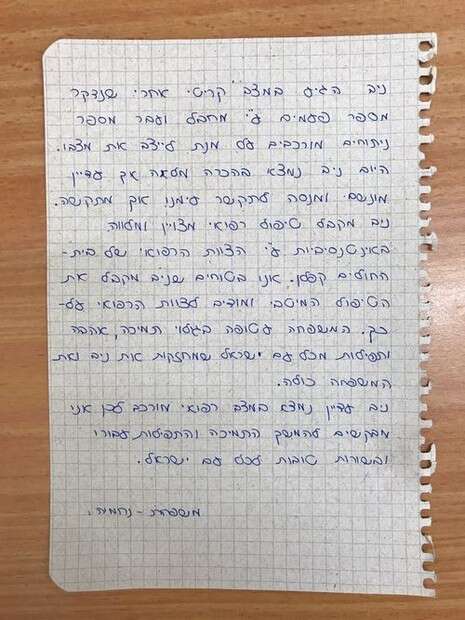 ניב הגיע במצב "קריטי" אחרי שנדקר
מספר פעמים ע"י מחבל ועבר מספר
ניתוחים מורכבים על מנת לייצב את מצבו.
היום ניב נמצא בהכרה מלאה אך עדיין
מונשם ומנסה לתקשר עימנו אך מתקשה.
ניב מקבל טיפול רפואי מצויין ומלווה
באינטנסיביות ע"י הצוות הרפואי של בית-
החולים קפלן. אנו בטוחים שניב מקבל את
הטיפול המיטבי ומודים לצוות הרפואי על-
כך. המשפחה עטופה בגלוי תמיכה, אהבה
ותפילות מכל עם ישראל שמחזקות את ניב ואת
המשפחה כולה.
ניב עדיין נמצא במצב רפואי מורכב לכן אנו
מבקשים להמשך התמיכה והתפילות עבורו
ובשורות טובות לכל עם ישראל.
משפחת - נחמיה.